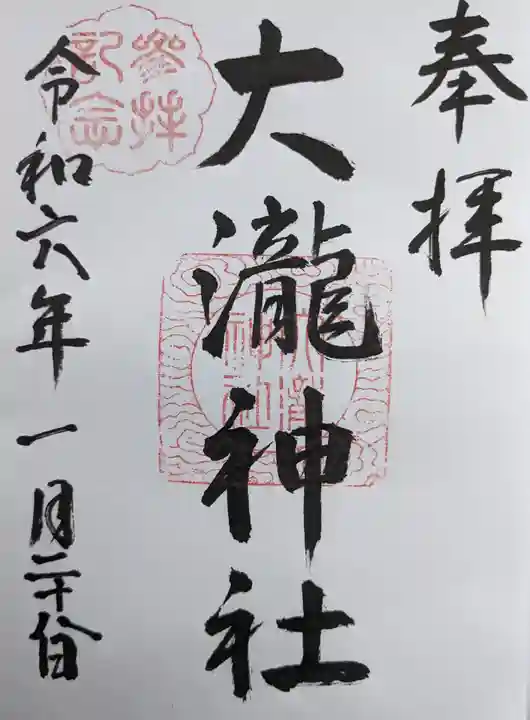 奉拝
大瀧神社
令和六年一月二十日
參拝
記念
大瀧
神社